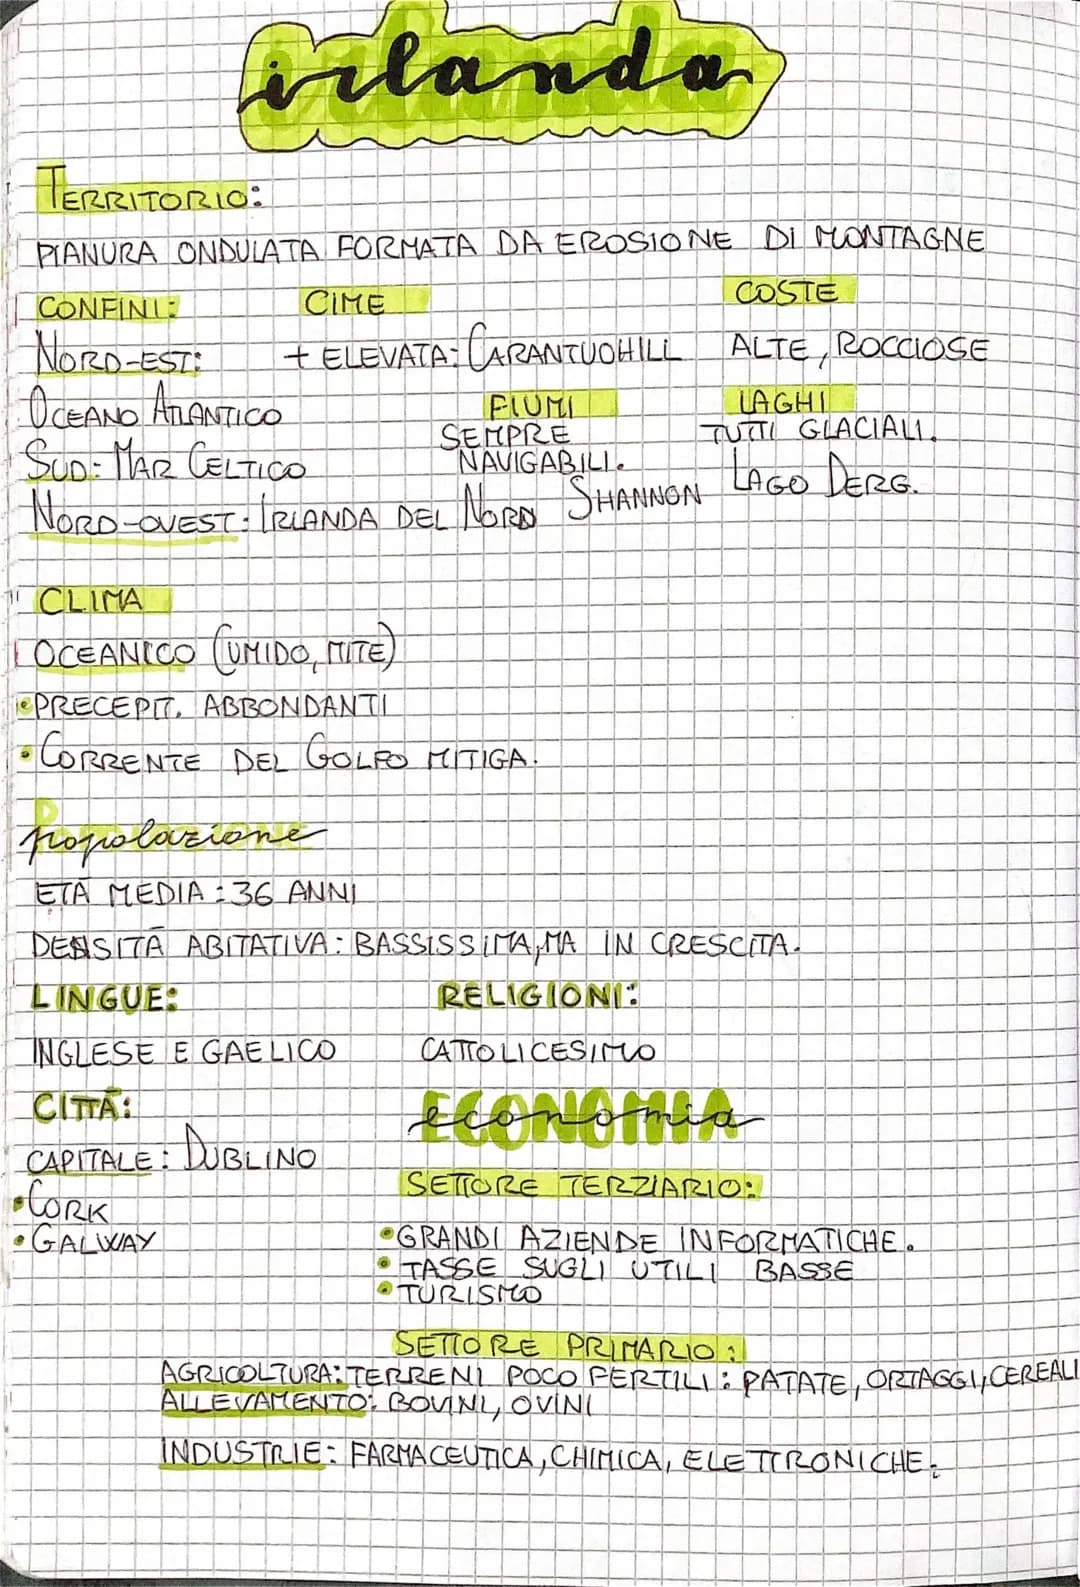 irlanda
TERRITORIO:
PIANURA ONDULATA FORMATA DA EROSIONE DI MONTAGNE
CONFINI:
NORD-EST:
OCEANO ATLANTICO
SUD: MAR CELTICO
NORD-OVEST: IRLANDA DEL NORD
CIME
+ ELEVATA: CARANTUOHILL
COSTE
ALTE, ROCCIOSE
FIUMI
SEMPRE
NAVIGABILI.
SHANNON
LAGHI
TUTTI GLACIALI.
LAGO DERG.
CLIMA
OCEANICO (UMIDO, MITE)
•PRECEPIT. ABBONDANTI
•CORRENTE DEL GOLFO MITIGA.
popolazione
ETÀ MEDIA: 36 ANNI
DENSITÀ ABITATIVA: BASSISSIMA, MA IN CRESCITA.
LINGUE:
INGLESE E GAELICO
RELIGIONI:
CATTOLICESIMO
CITTÀ:
CAPITALE: DUBLINO
•CORK
•GALWAY
ECONOMIA
economia
SETTORE TERZIARIO:
•GRANDI AZIENDE INFORMATICHE.
•TASSE SUGLI UTILI BASSE
•TURISMO
SETTORE PRIMARIO:
AGRICOLTURA: TERRENI POCO FERTILI: PATATE, ORTAGGI, CEREALI
ALLEVAMENTO: BOVINI, OVINI
INDUSTRIE: FARMACEUTICA, CHIMICA, ELETTRONICHE.